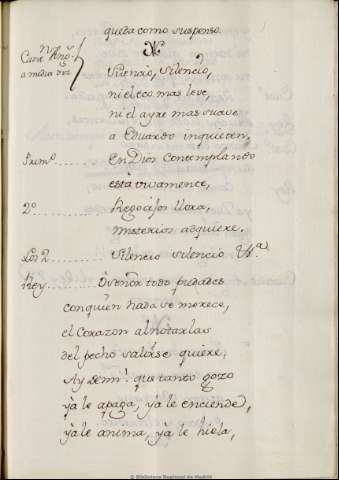 queda como suspenso.
Silencio, Silencio,
a media voz
ni el eco mas leve,
ni el ayre mas suave
a Eduardo inquieten,
Prim.º En Dios Contemplando
està vivamente,
2.º Regocijos llora,
misterios adquiere,
Los 2 Silencio silencio &.ª
Rey todo piedades
conquièn nada se merece,
el Corazon al notarlas
del pecho salirse quiere,
Ay de mi! que tanto gozo
yà le apaga, yà le enciende,
yà le anima, yà le hiela,
© Biblioteca Nacional de Madrid